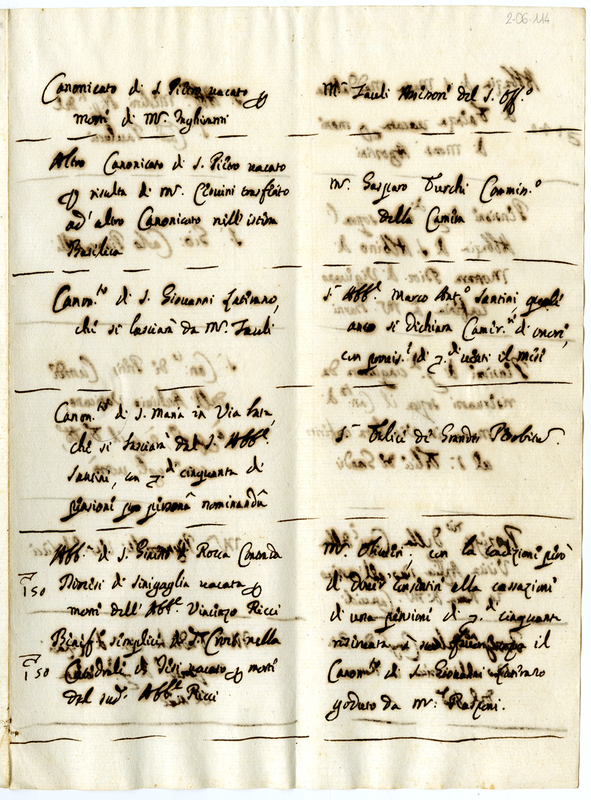 2-06-114
Canonicato di S. Pietro vacato p
morte di Mr. Inghirami
Mr. Fauli Assessore del S. Off.o
Altro Canonicato di S. Pietro vacato
p risulta di Mr. trasferito
ad altro Canonicato nell' istessa
Basilica
Mr. Gasparo Turchi Commiss.o
della Camera
Canon.to di S. Giovanni Laterano,
che si lasciarà da Mr. Fauli
Sr. Abb.e Marco Ant.o Santini, quale
anco si dichiara Camer.re d'onore,
con di ucati il mese
Canon.to di S. Maria in Via Lata,
che si lasciarà dal Sr. Abb.e
Santini, con cinquanta di
pensione pro persona nominanda
Sr. Felice de Grandis
Abb.a di S. di Rocca Contrada
Diocesi di Sinigaglia vacata p
150
morte dell' Abb.e Vincenzo Ricci
Benef.o semplice di S.ta Croce nella
150
Catedrale di Jesi vacato p morte
del sud.o Abb.e Ricci
Mr. con la condizione però
di dover consentire alla cassazione
di una pensione di cinquanta
il
Canon.to di S. Giovanni Laterano
goduto da Mr.